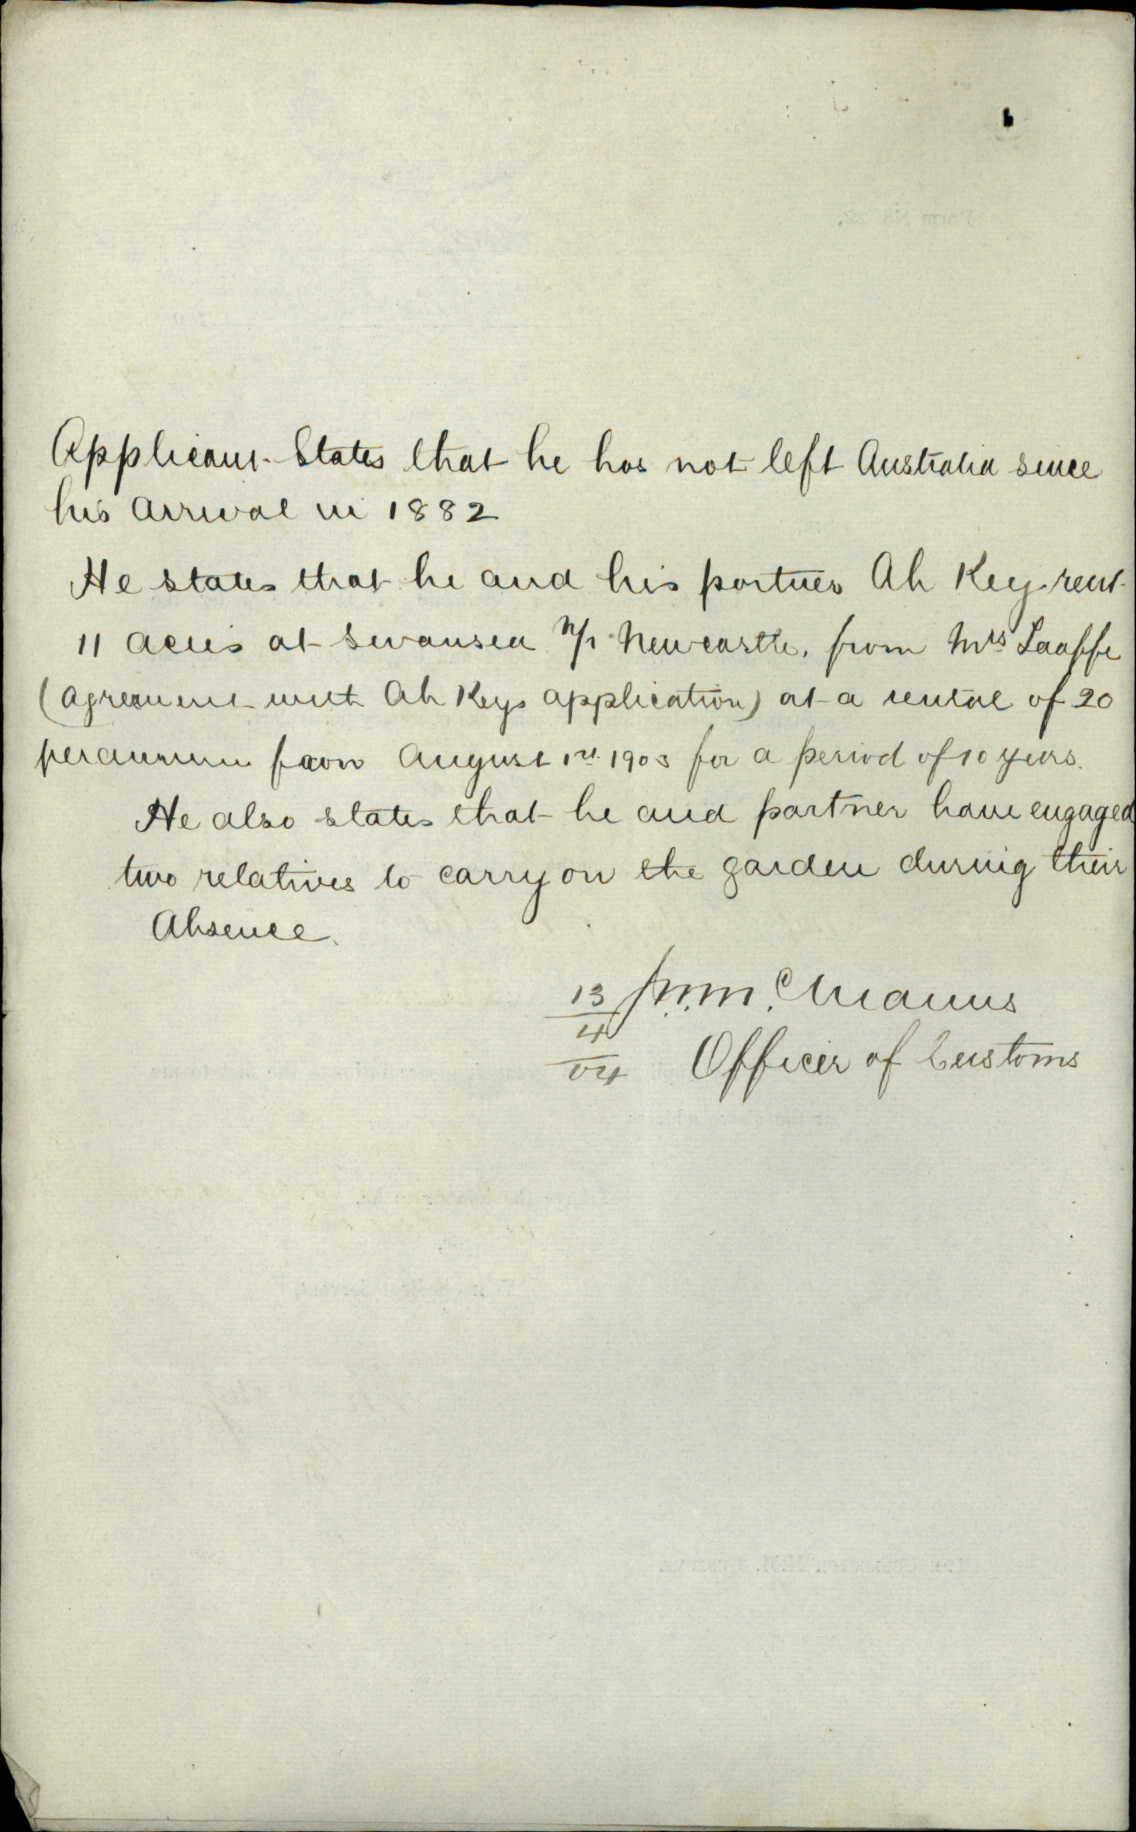 Applicant States that he has not left Australia since
his arrival in 1882
He states that he and his partner Ah Key rent
11 acres at Swansea Newcastle, from Mrs
(agreement with Ah Keys application) at a rental of 20
per annum from August 1st 1903 for a period of 10 years.
He also states that he and partner have engaged
two relatives to carry on the garden during their
Absence.
13 McManus
4
04 Officer of Customs